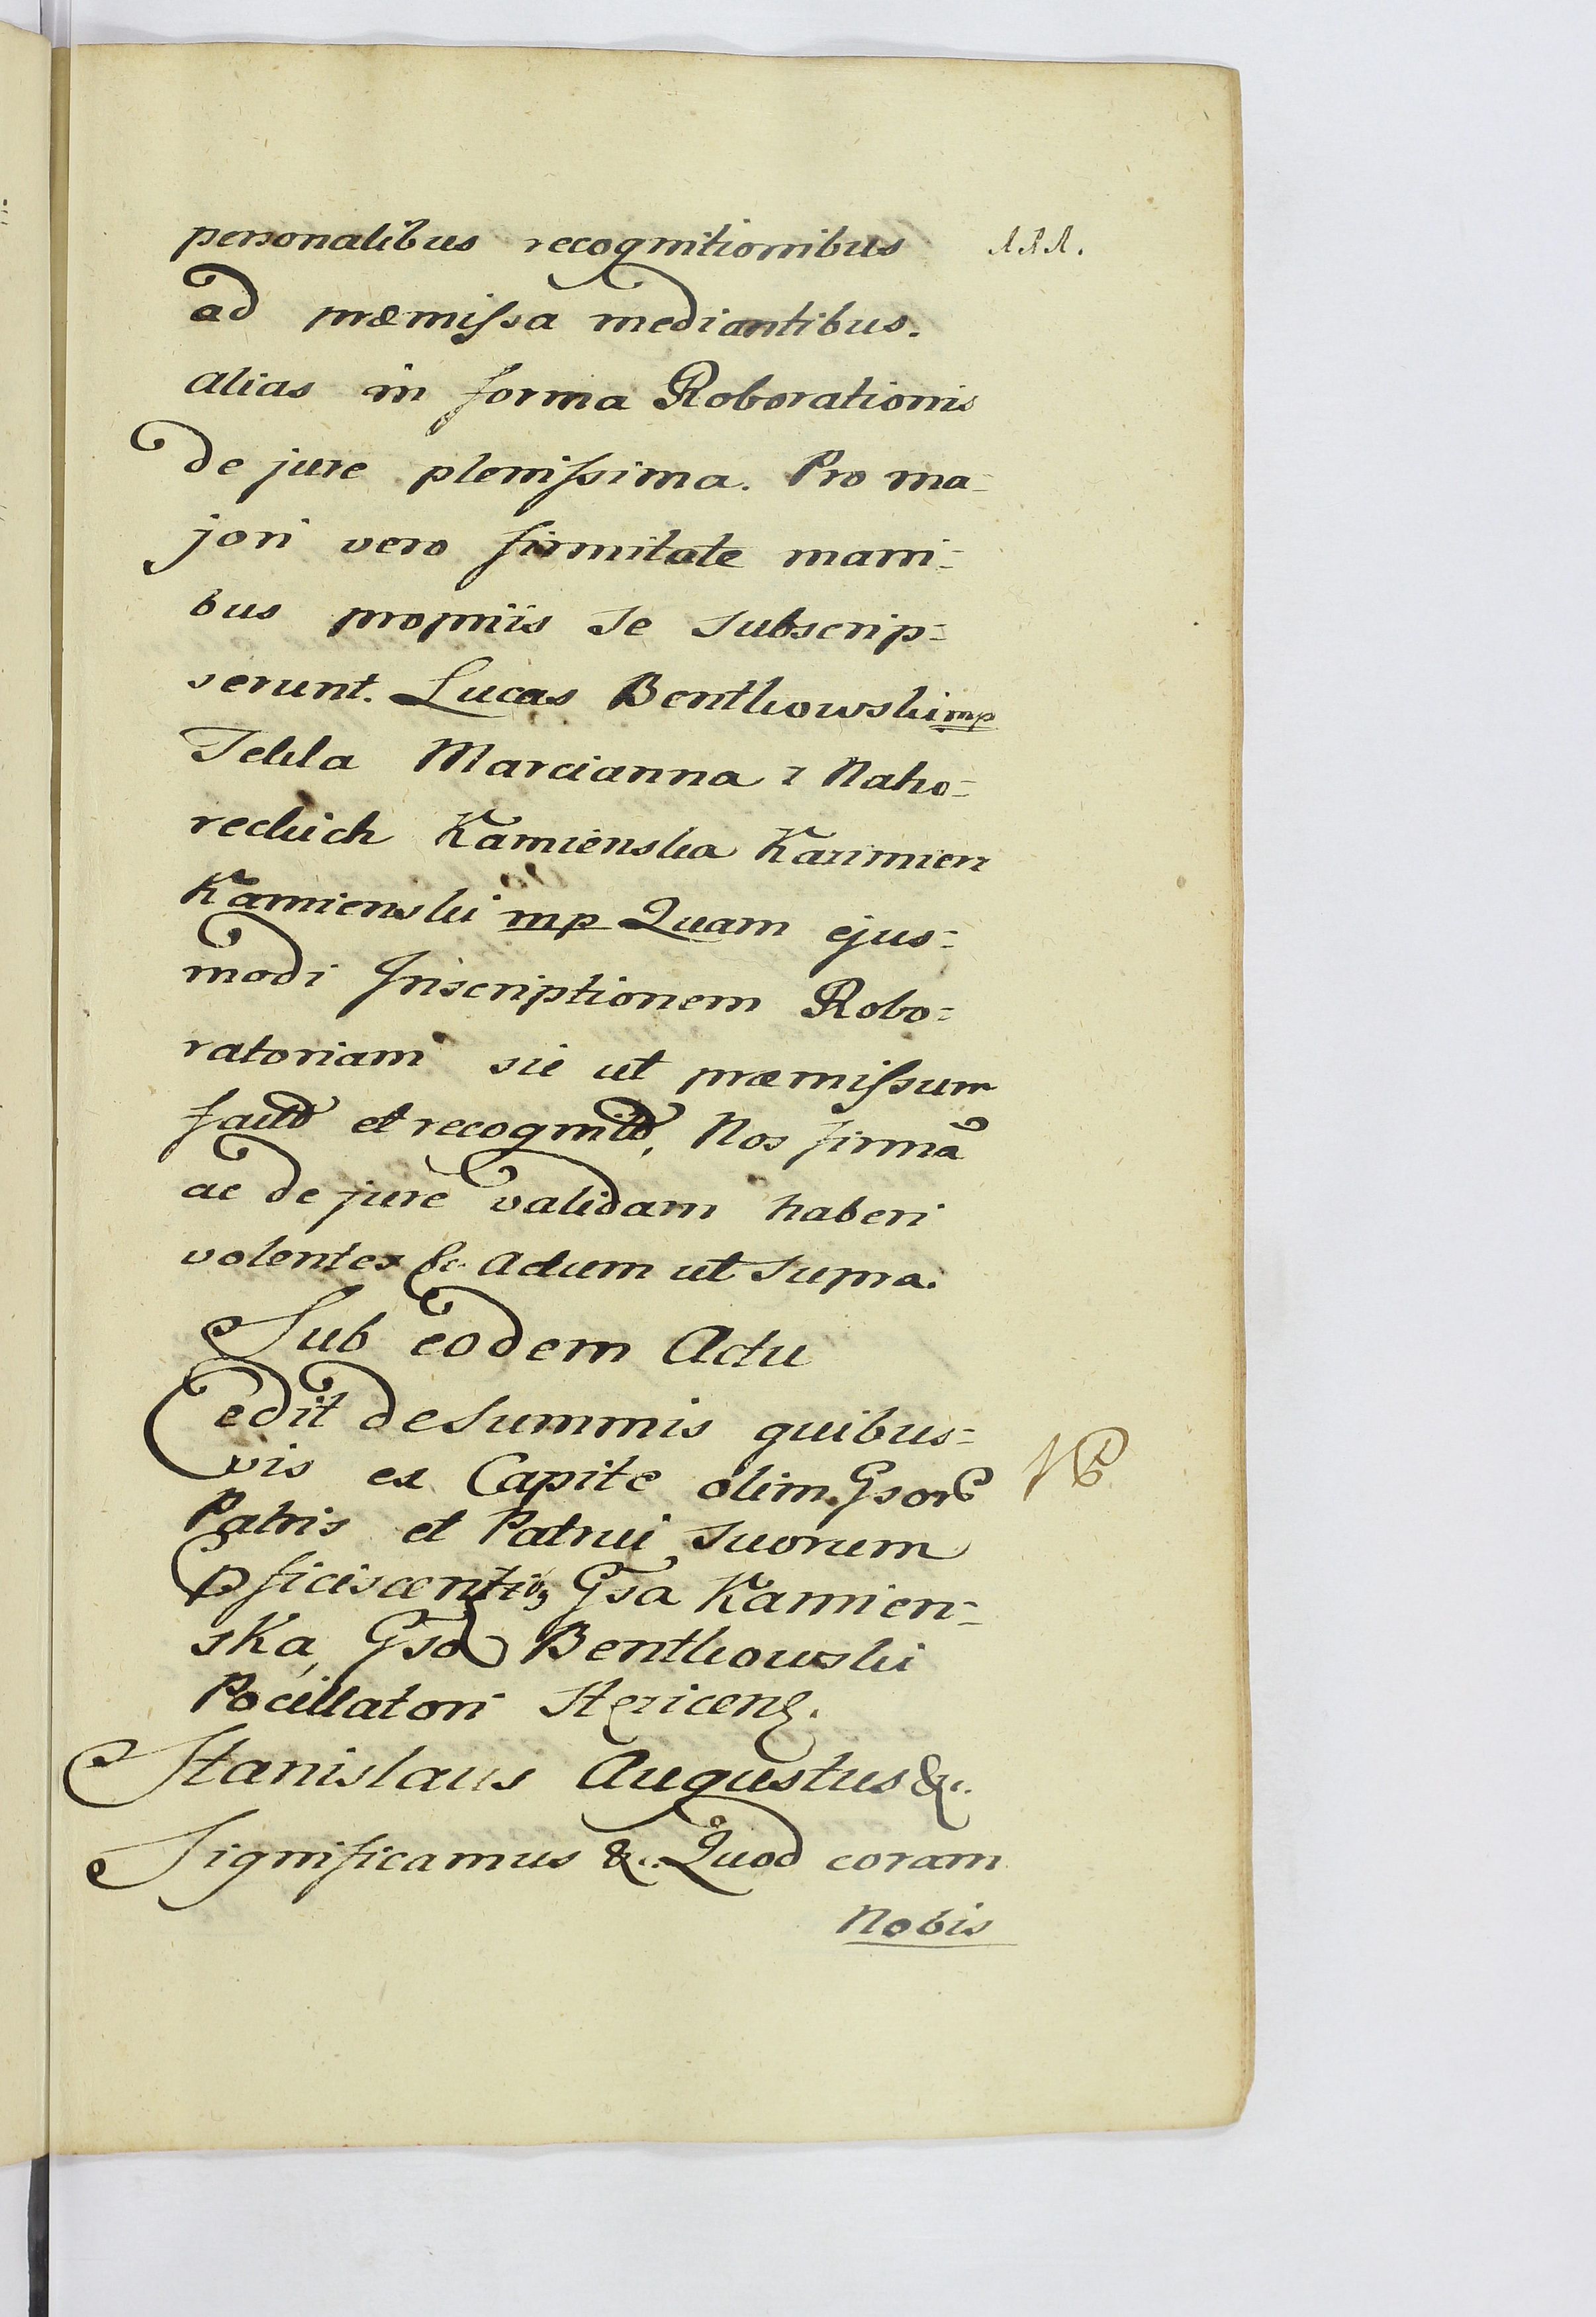 personalibus recognitionibus 111.
ad præmissa mediantibus.
alias in forma Roborationis
de jure plenissima. Pro ma=
jori vero firmitate mani=
bus propriis se subscrip=
serunt. Lucas Bentkowski mp
Tekla Marcianna z Naho=
reckich Kamienska Kazimierz
Kamienski mp Quam ejus=
modi Inscriptionem Robo=
ratoriam sic ut præmissum
factã et recognitã, Nos firmã
ac de jure validam haberi
volentes &c. Actum ut supra.
Sub eodem Actu
Cedit de summis quibus=
vis ex Capite olim Gsorũ NB
Patris et Patrui suorum
pficiscentibq Gsa Kamien=
ska, Gso Bentkowski
Pocillatori
Stanislaus Augustus &c.
Significamus &c. Quod coram
Nobis